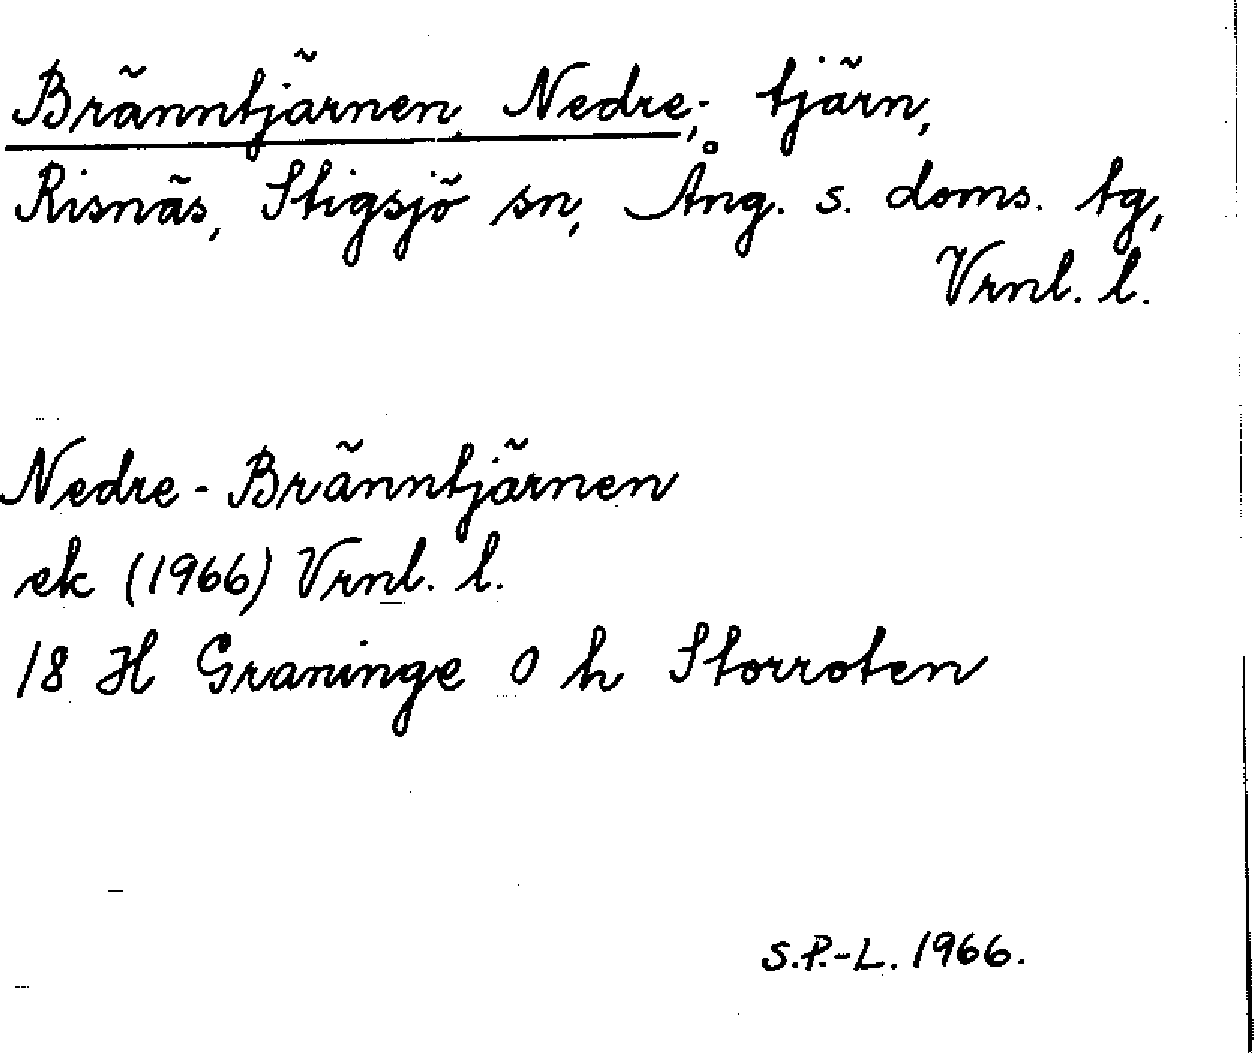 Bränntjärnen, Nedre-, tjärn,
Risnäs, Stigsjö sn, Ång. s. doms. tg,
Vrnl. l.
Nedre-Bränntjärnen
ek (1966) Vrnl. l.
18 H Graninge O h Storroten
S.P.-L. 1966.